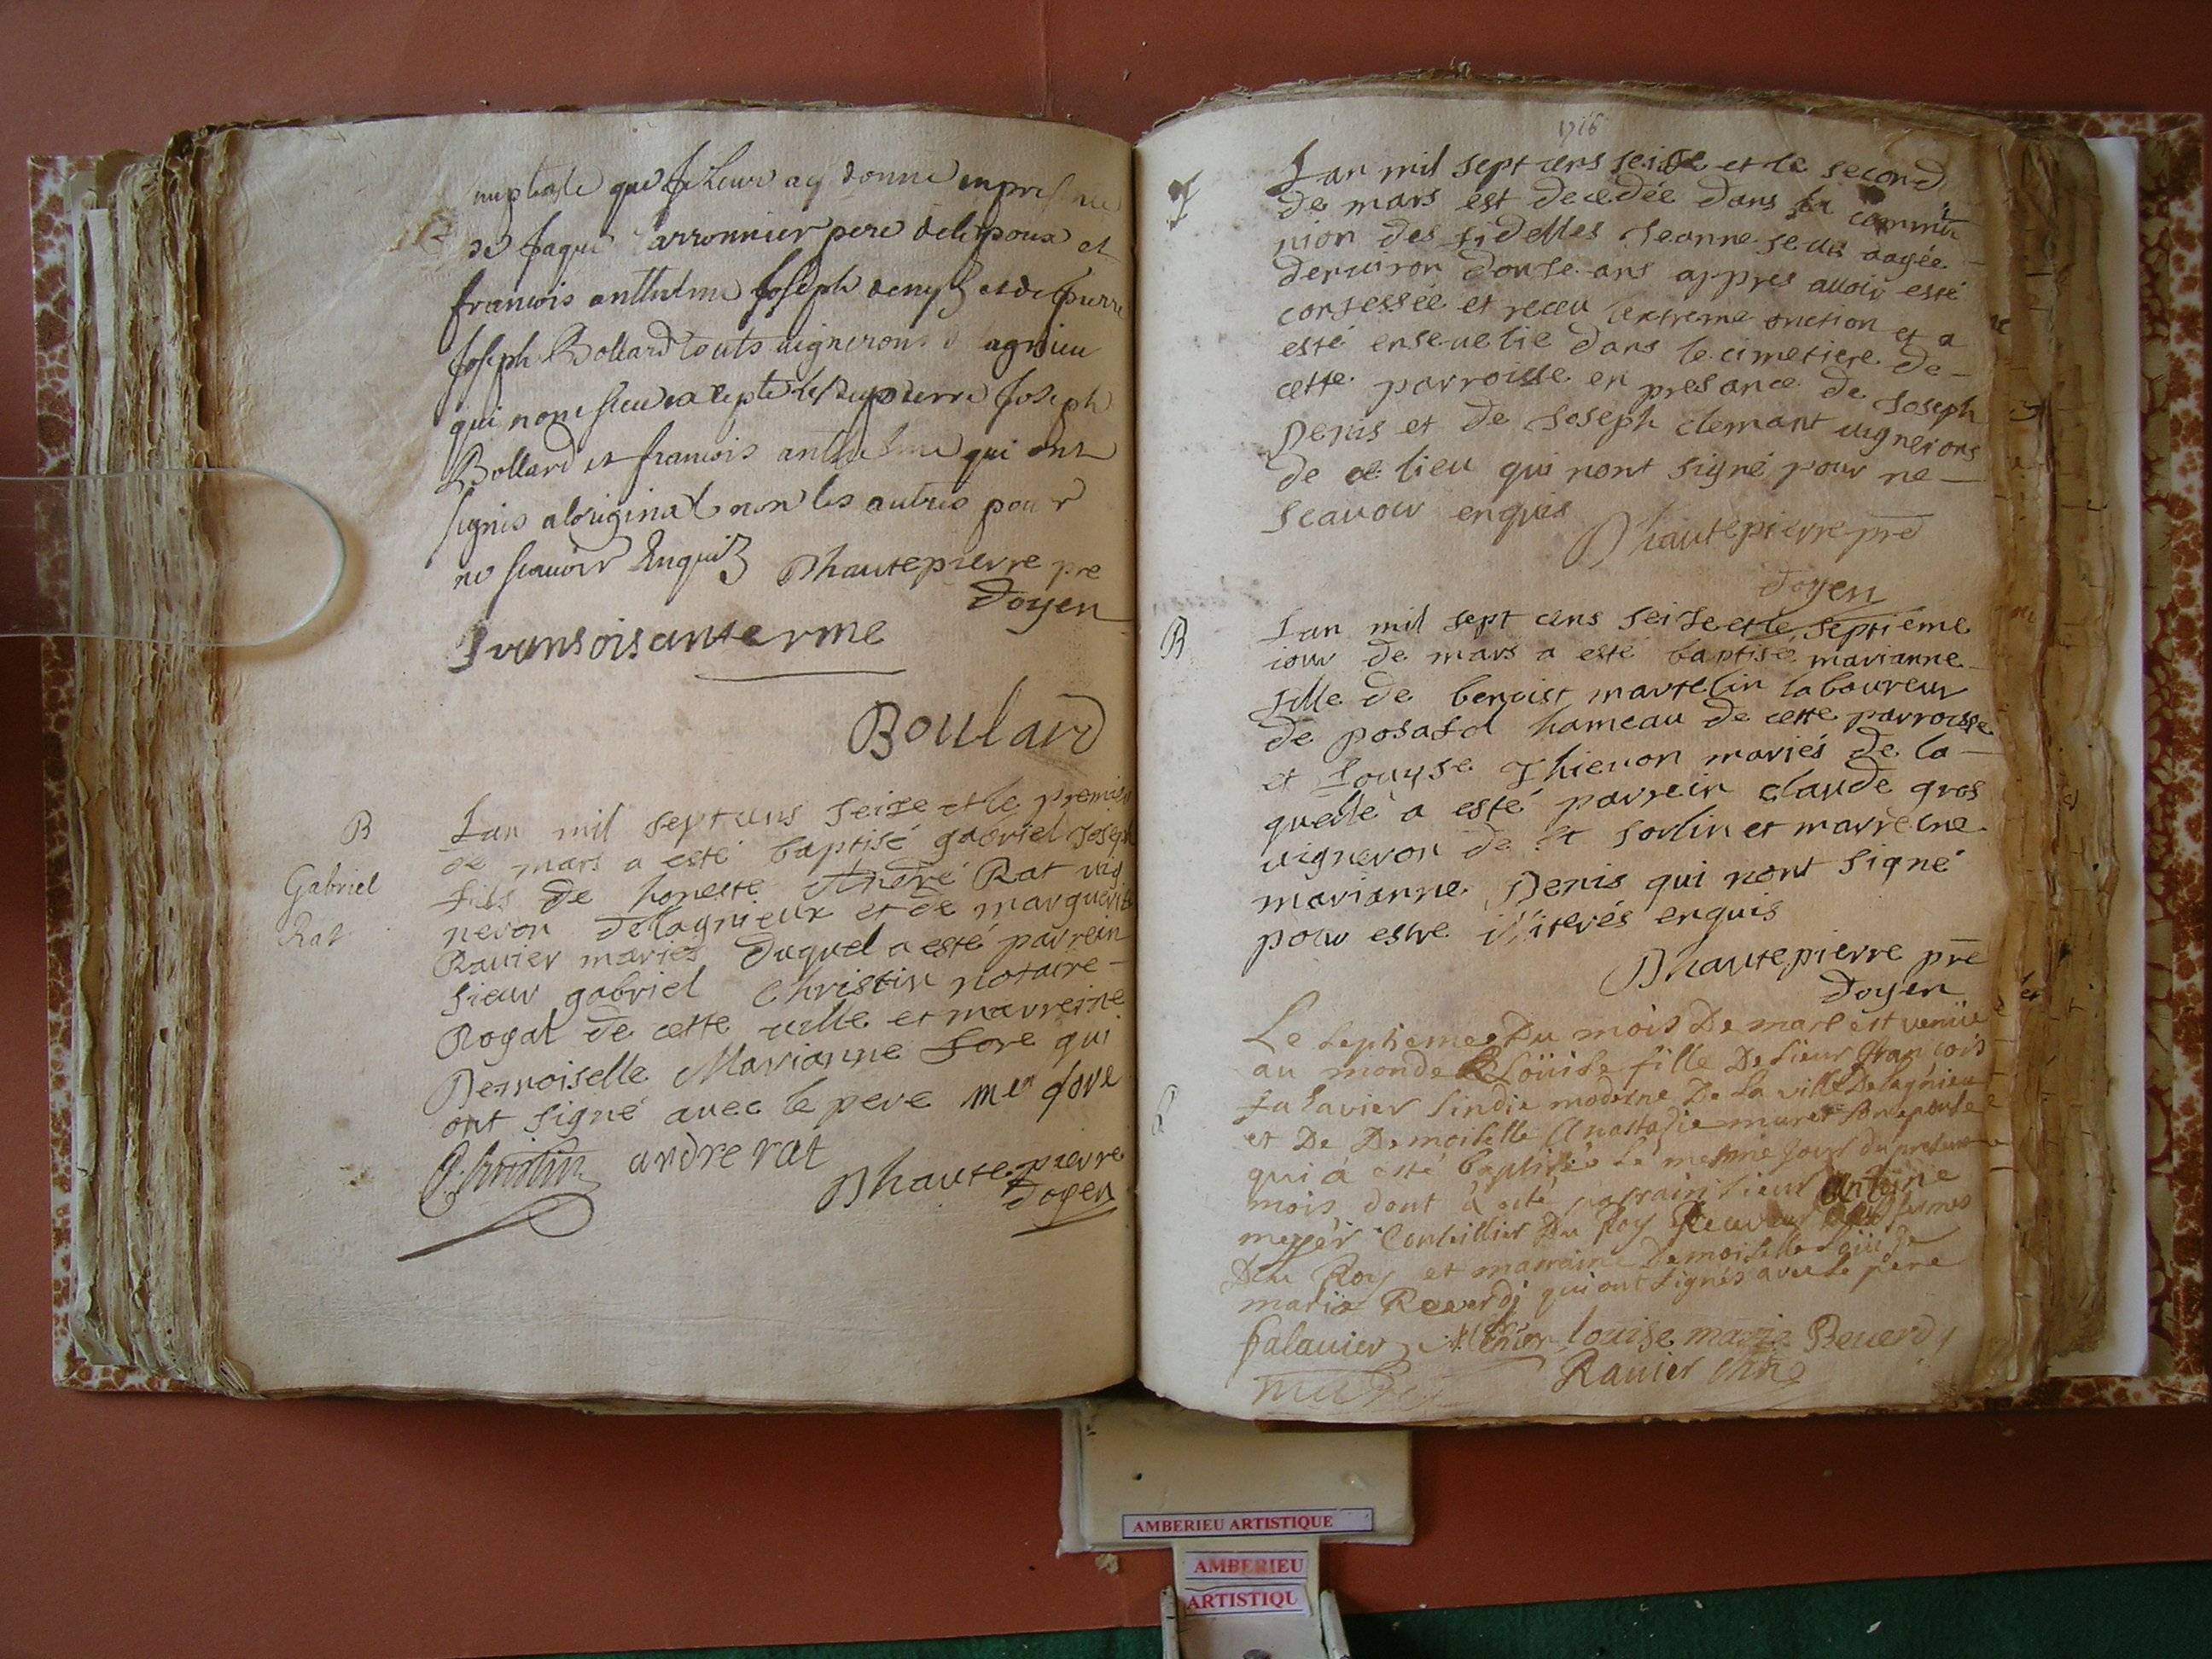 nuptiale que je leur ay donné en presence
de Jaque Carronnier pere de lepoux et
francois anthelme Joseph denys et de pierre
Joseph Bollard touts vignerons d lagnieu
qui nont signé excepté led pierre Joseph
Bollard et francois anthelme qui ont
signés a loriginal non les autres pour
ne scavoir Enquis Dhautepierre pre
doyen
fransois anterme
Boulard
B
Gabriel
Rat
Lan mil sept cens seise et le premier
de mars a esté baptisé gabriel Joseph
fils de honeste André Rat vig
neron de Lagnieux et de marguerite
Ravier mariés duquel a esté parrein
sieur gabriel Christin notaire
Royal de cette ville et marreine
Demoiselle Marianne fore qui
ont signé avec le pere mea fore
Christin andre rat
Dhautepierre
doyen
1716
Lan mil sept cens seise et le second
de mars est decedée dans la commu
nion des fidelles Jeanne aagée
denviron douse ans appres avoir esté
confessée et receu lextreme onction et a
esté ensevelie dans le cimetiere de
cette parroisse en presance de Joseph
Denis et de Joseph clemant vignerons
de ce lieu qui nont signé pour ne
scavoir enquis
Dhautepierre pre
doyen
B
Lan mil sept cens seise et le septieme
iour de mars a esté baptisé marianne
fille de benoist martelin laboureur
de posafol hameau de cette parroisse
et Louyse Thievon mariés de la
quelle a esté parrein claude gros
vigneron de st sorlin et marreine
marianne Denis qui nont signé
pour estre iliterés enquis
Dhautepierre pre
doyen
Le septieme Du mois De mars est venüe
au monde Loüise fille De sieur françois
falavier sindic moderne De la ville De lagnieu
et De Demoiselle Anastasie muret son epouse
qui a esté baptisée Le mesme jour du present
mois dont à esté parrain sieur Antoine
meyer Conseillier Du Roy Receveur Des fermes
Du Roy et marraine Demoiselle Loüise
marie Reverdj qui ont signés avec le pere
falavier Meyer louise marie Reverdy
muret Ravier
AMBERIEU ARTISTIQUE
AMBERIEU
ARTISTIQU